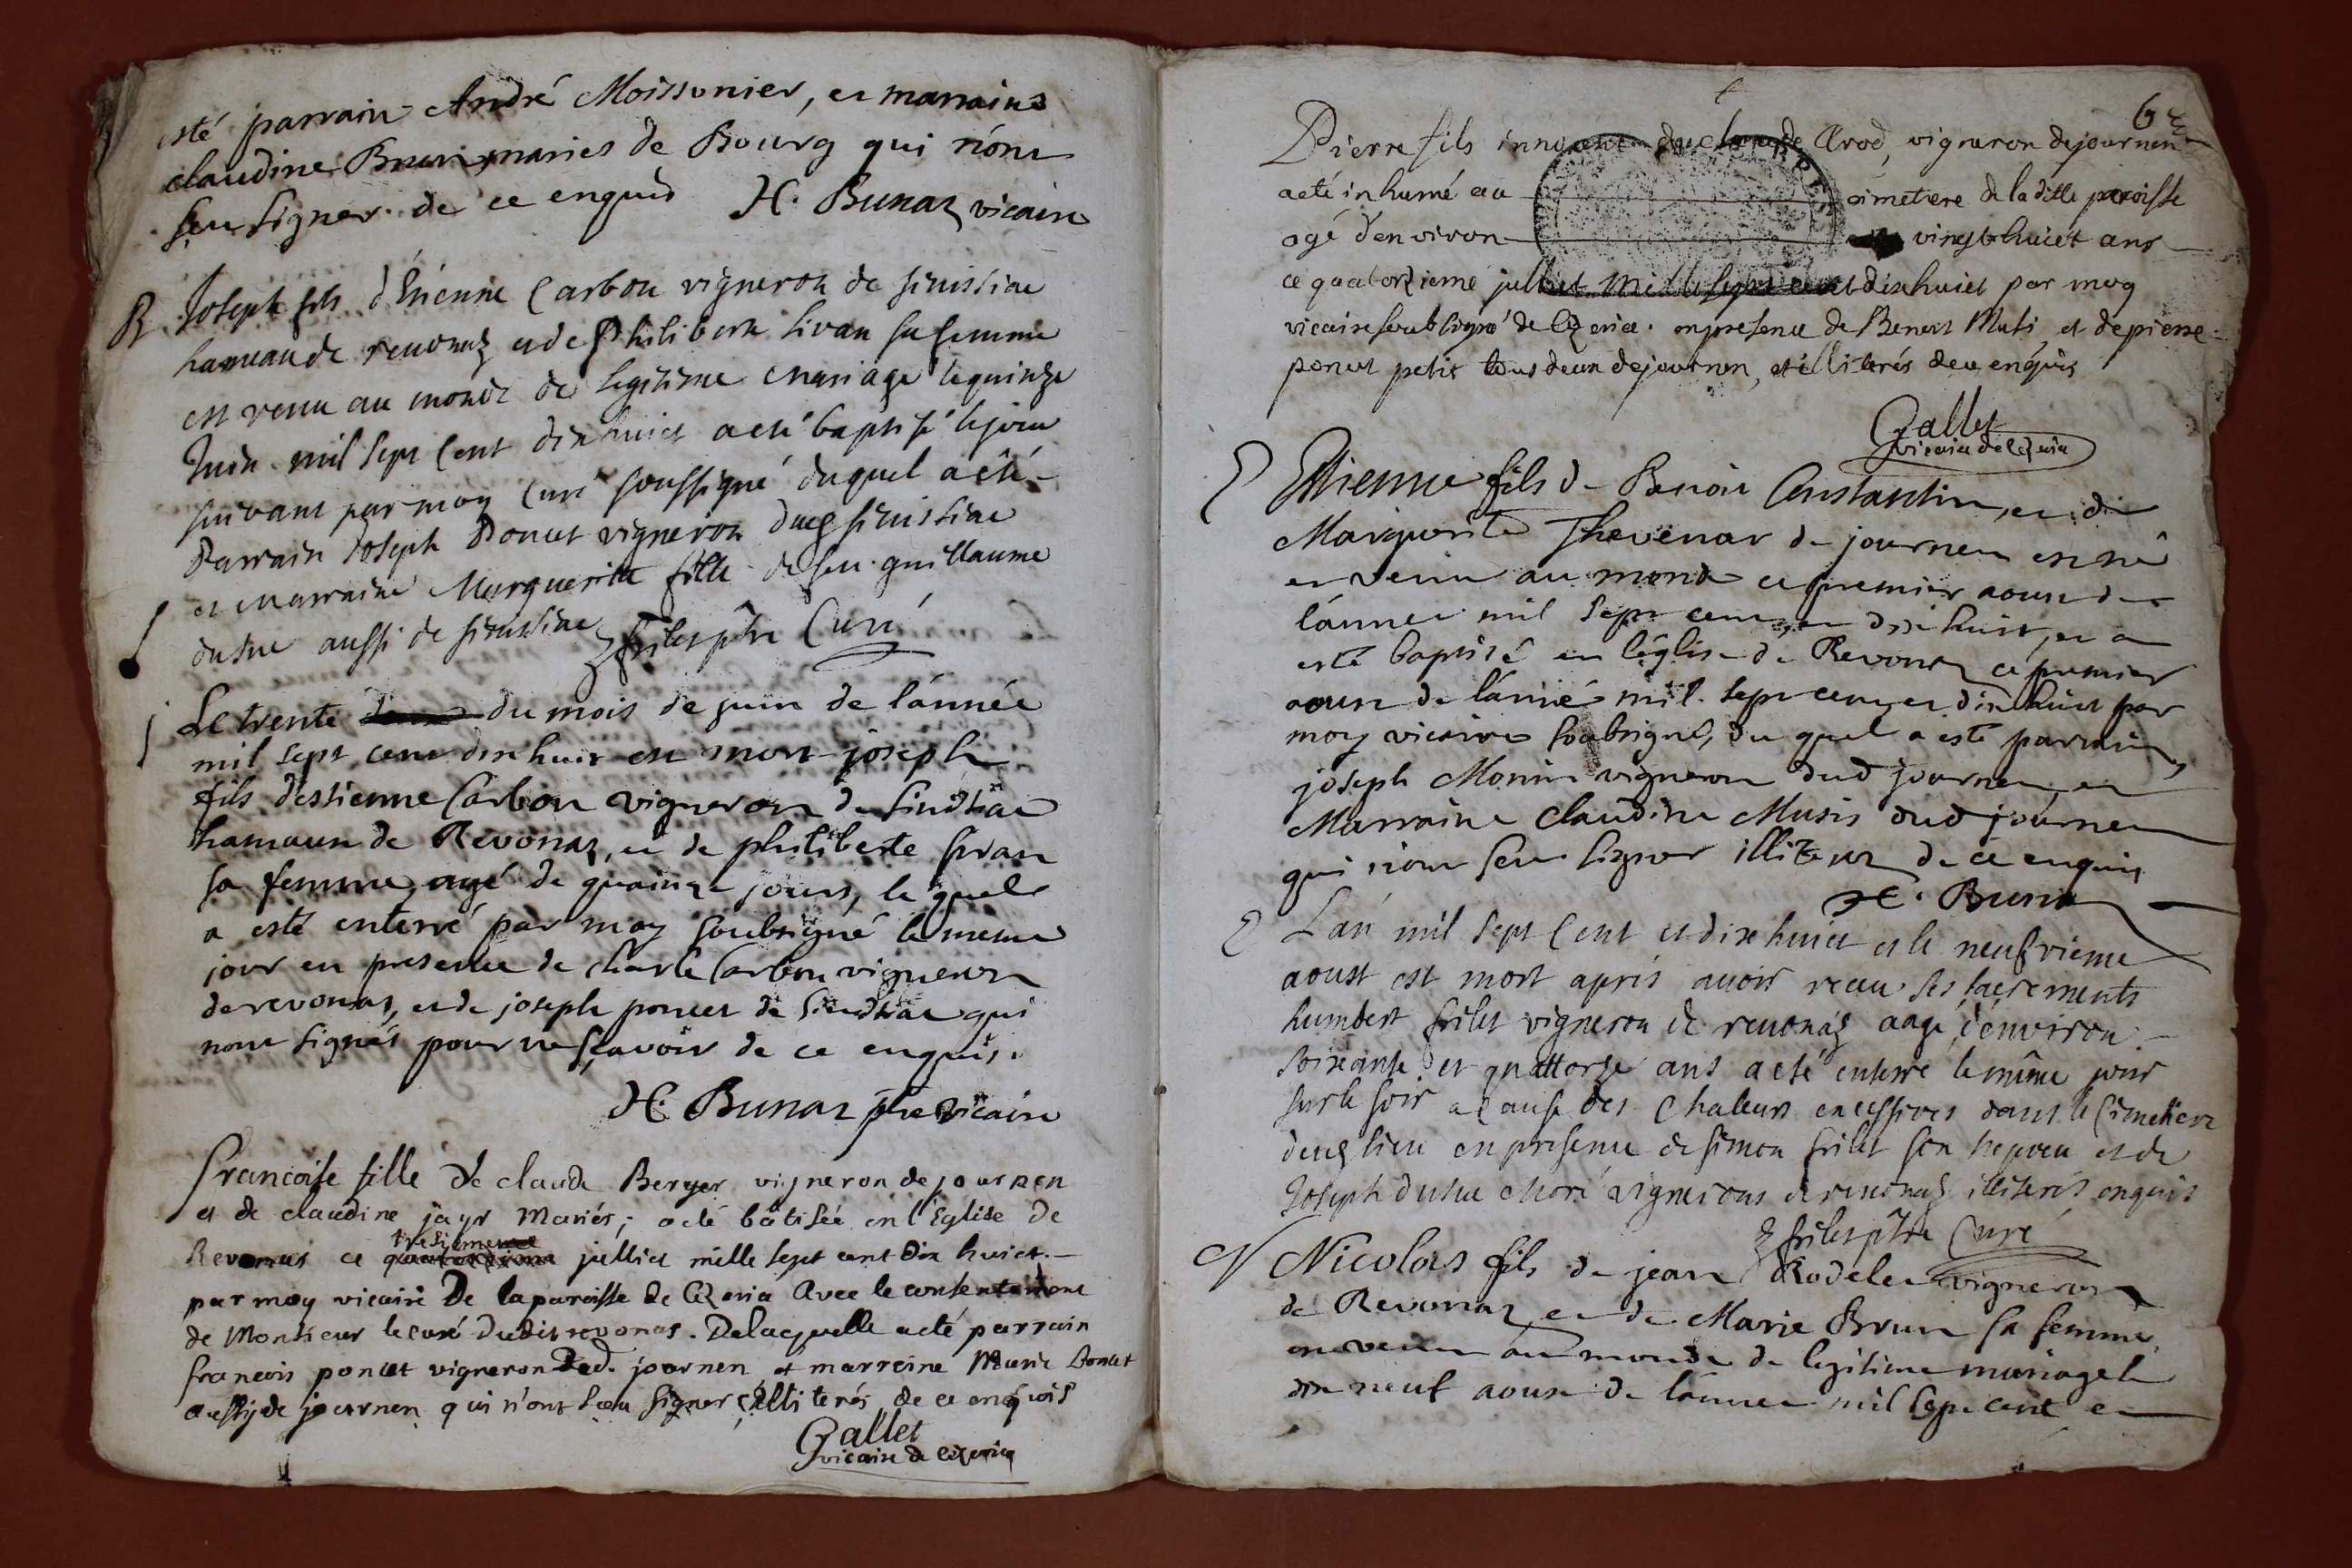 esté parrain André Moissonier, et marraine
claudine Brun mariés de Bourg qui n'ont
sceu signer de ce enquis H. Bunaz vicaire
B Joseph fils d'Etienne Carbon vigneron de sinissiac
hameau de revonaz et de Philiberte sivan sa femme
est venu au monde de legitime mariage le quinze
Juin mil sept cent dix huict a eté baptisé le jour
suivant par moy Curé soussigné duquel a eté
Parrain Joseph Poncet vigneron dud sinissiac
et marraine Marguerite fille de feu guillaume
aussi de sinissiac frilet ptre Curé
Le trente du mois de juin de l'année
mil sept cent dix huit est mort joseph
fils d'estienne Carbon vigneron de sindsiac
hameau de Revonaz, et de philiberte sivan
sa femme, agé de quainze jours, le quel
a esté enterré par moy soubsigné le mesme
jour en presence de charle Carbon vigneron
de revonaz, et de joseph poncet de sindsiac qui
n'ont signés pour ne sçavoir de ce enquis.
H. Bunaz ptre vicaire
Francoise fille de claude Berger vigneron de journen
et de claudine jayr Mariés; a eté bâtisée en l'Eglise de
Revonas ce quatorzieme tresiemement julliet mille sept cent dix huict.
par moy vicaire De la paroisse de Cezeria Avec le consentement
de Monsieur le curé dudit revonas. De laquelle a eté parrain
francois poncet vigneron Dud. journen et marreine Marie Poncet
aussy de journen qui n'ont sceu signer illiterés de ce enquis
Gallet
vicaire de cezeria
6
Pierre fils innocent de claude Crod, vigneron de journen
a eté inhumé au cimetiere de la ditte paroisse
agé d'environ vingt huict ans
ce quatorzieme julliet Mille sept cent dix huict par moy
vicaire soubsigné de Cezeria. en presence de Benoit Musi et de pierre
poncet petit tous deux de journen, et illiterés de ce enquis
Gallet
vicaire de Cezeria
Ettienne fils de Benoit Constantin, et de
Marguerite Thevenar de journen est né
et venu au monde ce premier aoust de
l'année mil sept cent, et dix huit, et a
esté baptisé en l'église de Revonaz ce premier
aoust de l'année mil sept cent et dix huit par
moy vicaire soubsigné, du quel a esté parrain
joseph Monin vigneron dud journen, et
Marraine Claudine Musis dud journen
qui n'ont sceu signer illiterez de ce enquis
H. Bunaz
L'an mil sept Cent et dix huict et le neufvieme
aoust est mort aprés avoir receu ses sacrements
humbert frilet vigneron de revonaz aagé d'environ
soixante et quattorze ans a eté enterré le même jour
sur le soir a cause des Chaleurs excessives dans le Cimetiere
dud lieu en presence de simon frilet son nepveu et de
Joseph vignerons de revonaz illiterés enquis
frilet ptre Curé
N Nicolas fils de jean Rodélet vigneron
de Revonaz, et de Marie Brun sa femme
est venu au monde de legitime mariage le
dix neuf aoust de l'année mil sept cent et